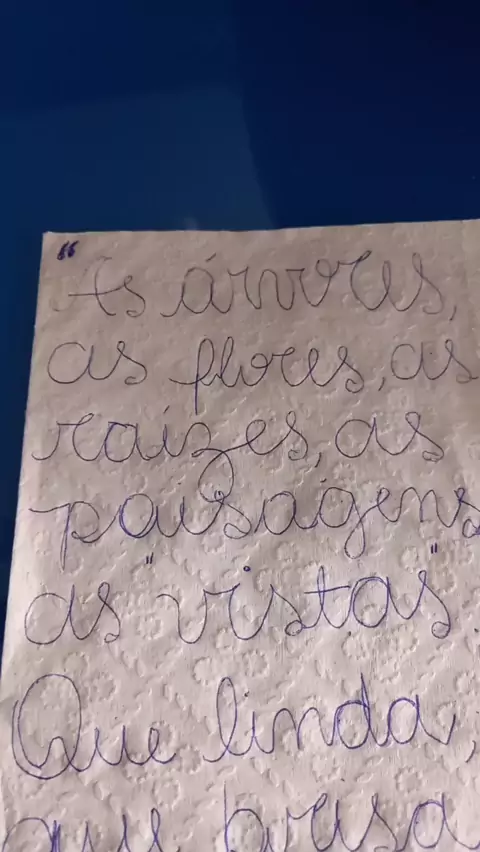 “As árvores,
as flores, as
raízes, as
paisagens
as "vistas"
Que linda,
que brisa